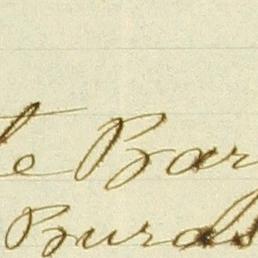 te Bar
Buras